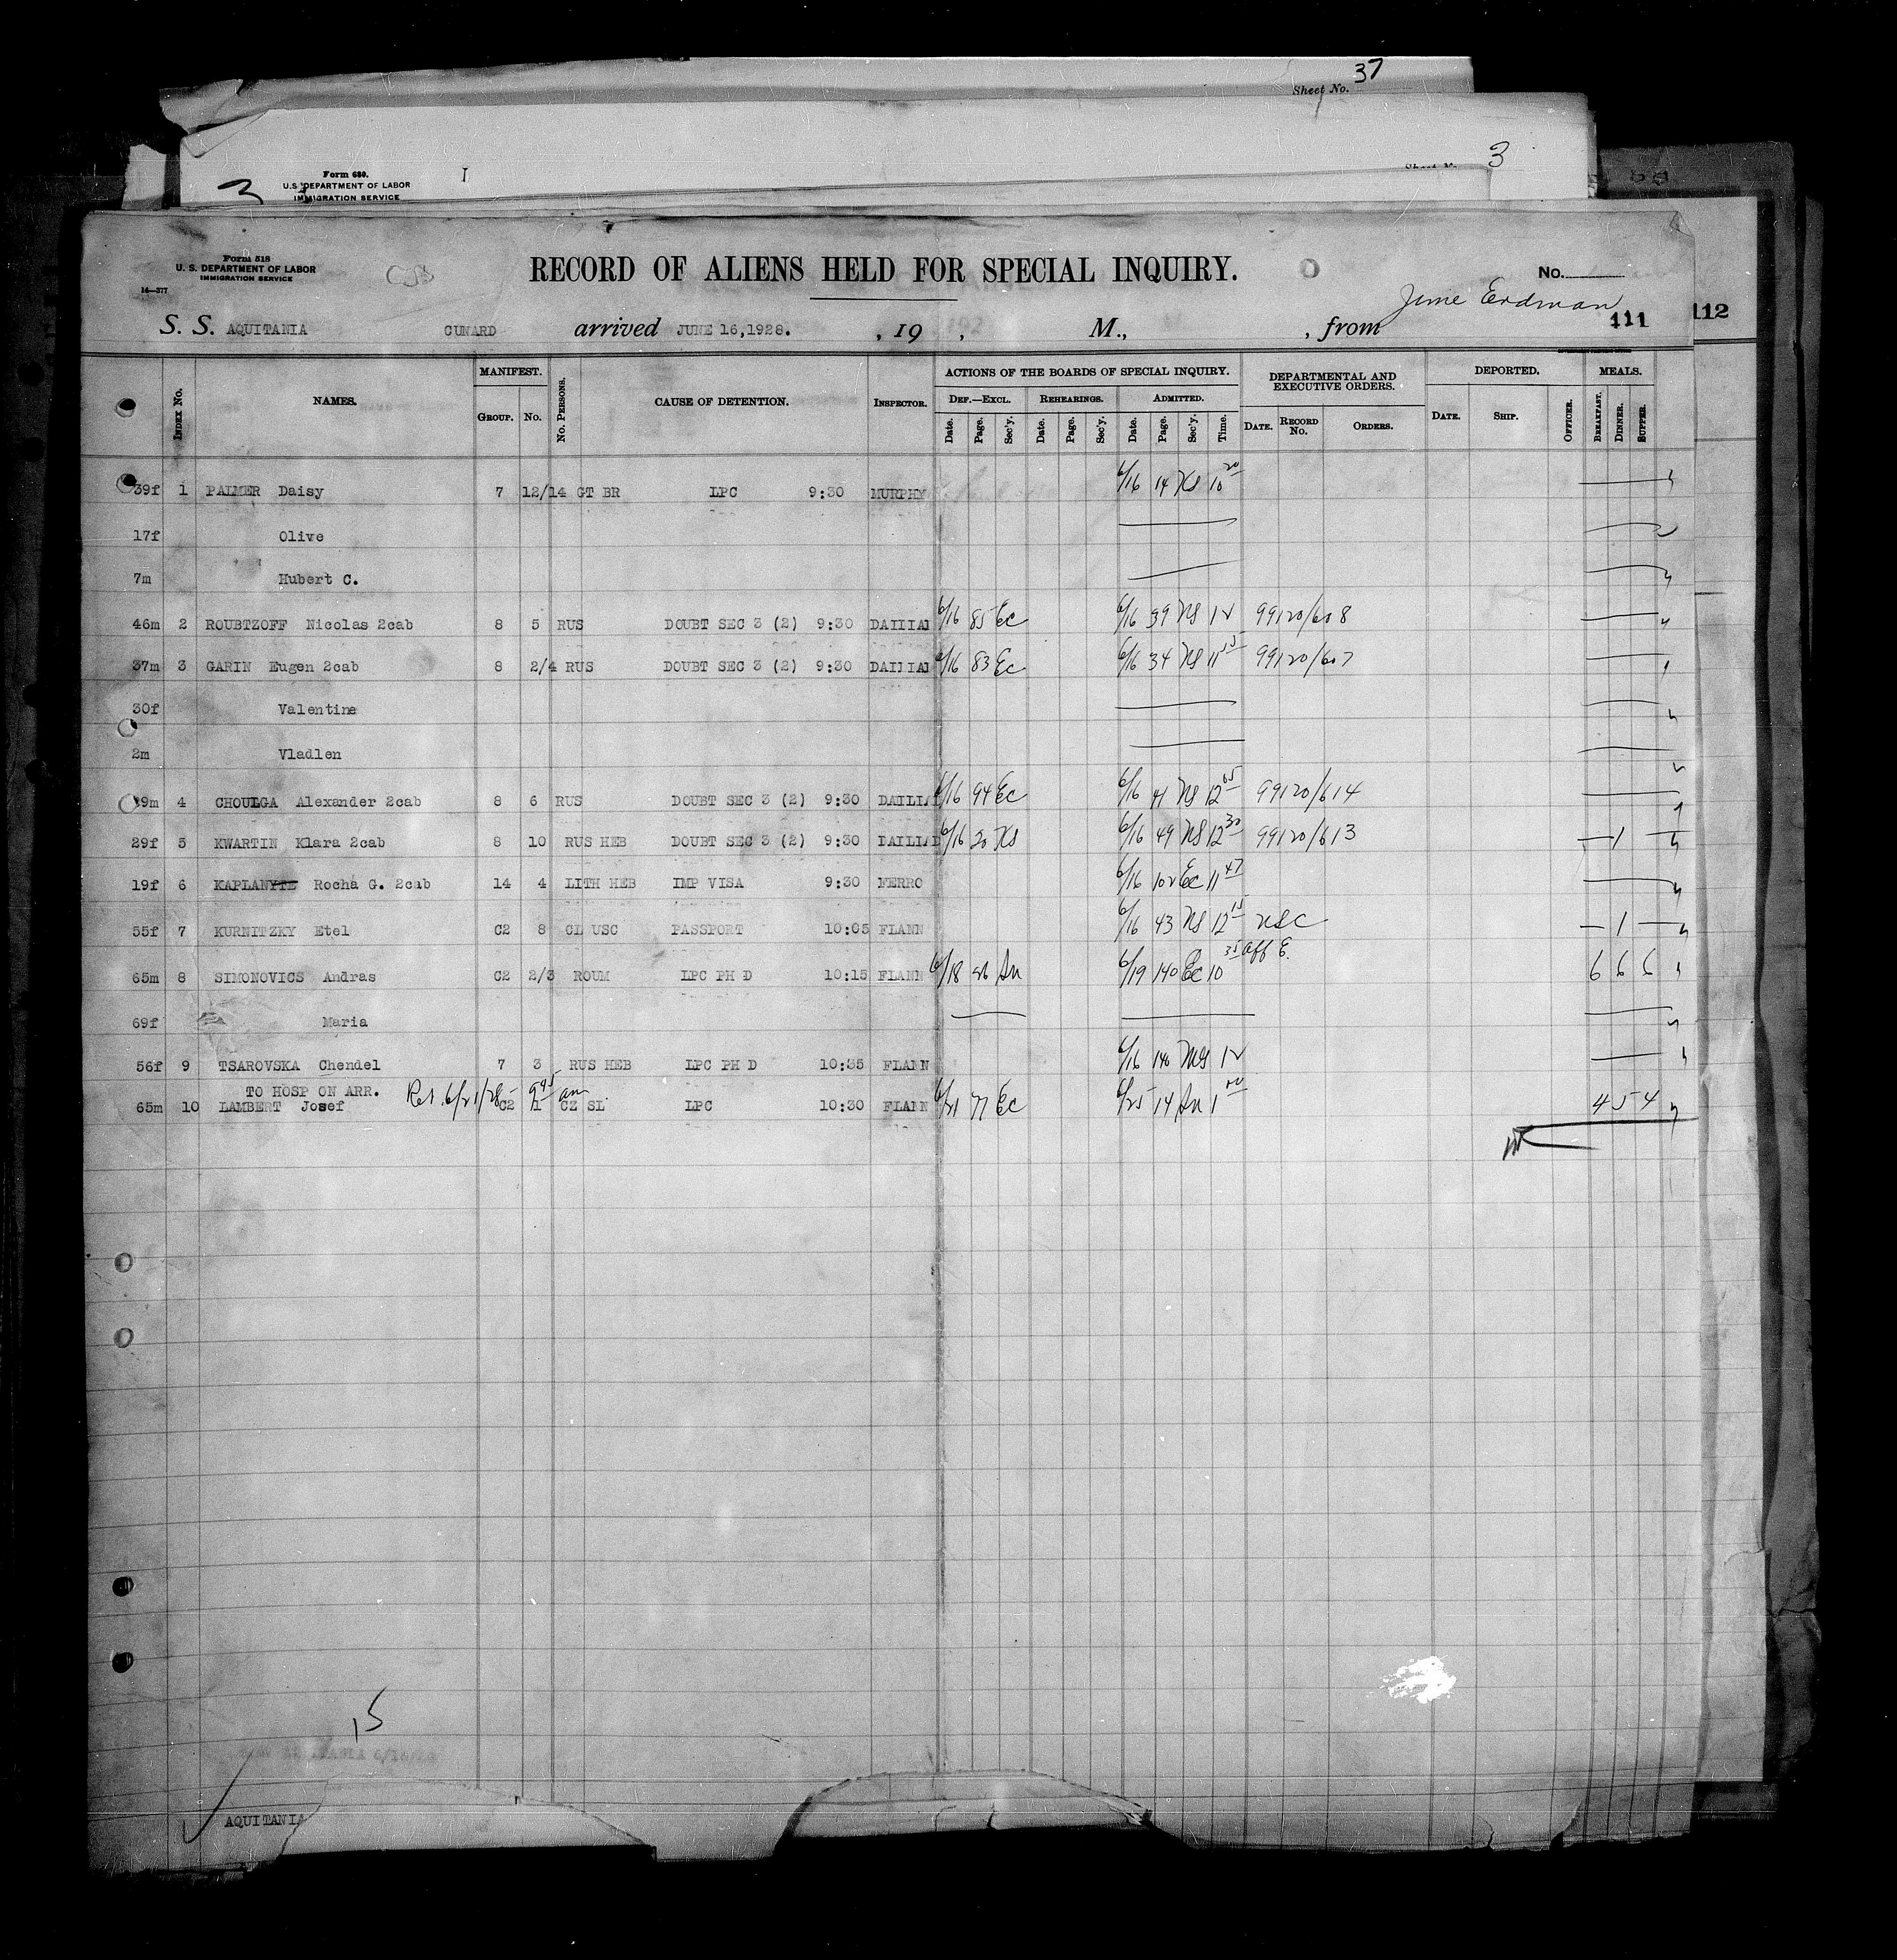 Sheet No. 37
3
Form 680.
U.S. DEPARTMENT OF LABOR
IMMIGRATION SERVICE
3
Form 518
U. S. DEPARTMENT OF LABOR
IMMIGRATION SERVICE
14—377
RECORD OF ALIENS HELD FOR SPECIAL INQUIRY.
No.
S. S. AQUITANIA CUNARD arrived JUNE 16,1928. , 19 , M., , from
Erdman
111
112
Index No. NAMES. MANIFEST. GROUP. NO. No. PERSONS. CAUSE OF DETENTION. INSPECTOR. ACTIONS OF THE BOARDS OF SPECIAL INQUIRY. DEPARTMENTAL AND EXECUTIVE ORDERS. DEPORTED. MEALS.
DEF.—EXCL. REHEARINGS. ADMITTED.
Date. Page. Sec'y. Date. Page. Sec'y. Date. Page. Sec'y. Time. DATE. RECORD No. ORDERS. DATE. SHIP. OFFICER. BREAKFAST. DINNER. SUPPER.
39f 1 PALMER Daisy 7 12/14 GT BR LPC 9:30 MURPHY 6/16 14 10 20
17f Olive
7m Hubert C.
46m 2 ROUBTZOFF Nicolas 2cab 8 5 RUS DOUBT SEC 3 (2) 9:30 6/16 85 Ec 6/16 39 NS 12 99120/608
37m 3 GARIN Eugen 2cab 8 2/4 RUS DOUBT SEC 3 (2) 9:30 6/16 83 Ec 6/16 34 NS 11 99120/607
30f Valentine
2m Vladlen
9m 4 CHOULGA Alexander 2cab 8 6 RUS DOUBT SEC 3 (2) 9:30 6/16 94 Ec 6/16 41 NS 12 05 99120/614
29f 5 KWARTIN Klara 2cab 8 10 RUS HEB DOUBT SEC 3 (2) 9:30 6/16 20 6/16 49 NS 12 30 99120/613 1
19f 6 KAPLANYTE Rocha G. 2cab 14 4 LITH HEB IMP VISA 9:30 FERRO 6/16 102 Ec 11 47
55f 7 KURNITZKY Etel C2 8 CL USC PASSPORT 10:05 FLANN 6/16 43 NS 12 15 USC 1
65m 8 SIMONOVICS Andras C2 2/3 ROUM LPC PH D 10:15 FLANN 6/18 26 6/19 140 Ec 10 35 aff E. 6 6 6
69f Maria
56f 9 TSAROVSKA Chendel 7 3 RUS HEB LPC PH D 10:35 FLANN 6/16 12
TO HOSP ON ARR. Ret. 6/21/28 9 45 am
65m 10 LAMBERT Josef C2 1 CZ SL LPC 10:30 FLANN 6/21 71 Ec 6/25 14 1 4 5 4
15
AQUITANIA